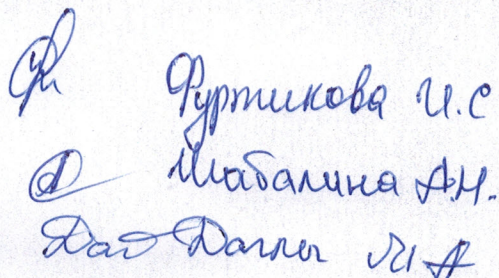 Фуртикова И.С
Шабалина А.Н.
Даглы М А